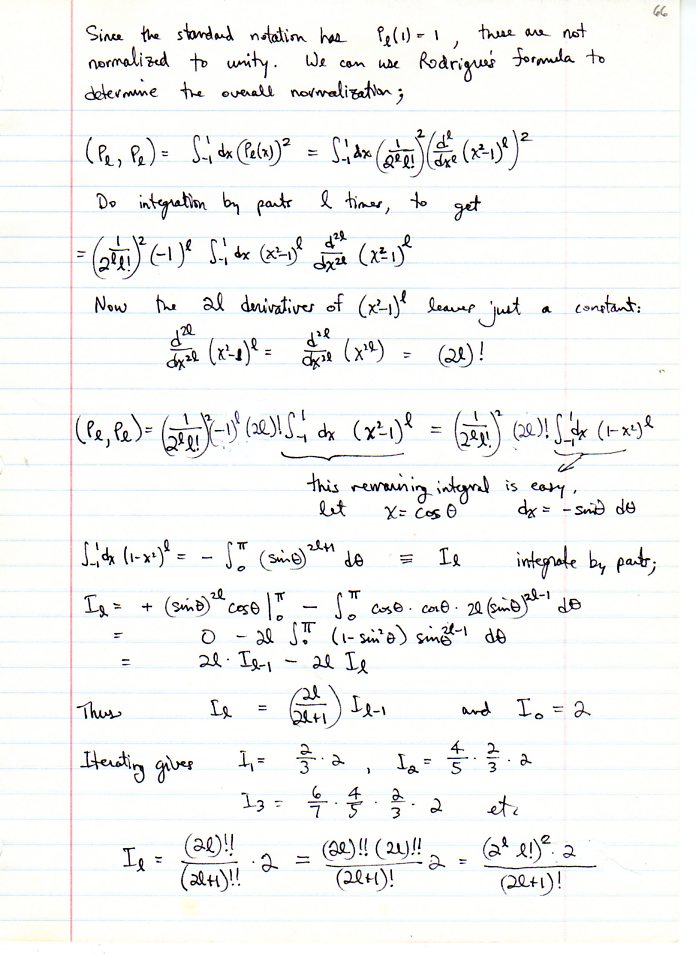 66
Since the standard notation has P_ℓ(1) = 1 , these are not
normalized to unity. We can use Rodrigue's formula to
determine the overall normalization;
(P_ℓ, P_ℓ) = ∫_{-1}^{1} dx (P_ℓ(x))^2 = ∫_{-1}^{1} dx (1/(2^ℓ ℓ!))^2 (d^ℓ/dx^ℓ (x^2-1)^ℓ)^2
Do integration by parts ℓ times, to get
= (1/(2^ℓ ℓ!))^2 (-1)^ℓ ∫_{-1}^{1} dx (x^2-1)^ℓ d^{2ℓ}/dx^{2ℓ} (x^2-1)^ℓ
Now the 2ℓ derivatives of (x^2-1)^ℓ leaves just a constant:
d^{2ℓ}/dx^{2ℓ} (x^2-1)^ℓ = d^{2ℓ}/dx^{2ℓ} (x^{2ℓ}) = (2ℓ)!
(P_ℓ, P_ℓ) = (1/(2^ℓ ℓ!))^2 (-1)^ℓ (2ℓ)! ∫_{-1}^{1} dx (x^2-1)^ℓ = (1/(2^ℓ ℓ!))^2 (2ℓ)! ∫_{-1}^{1} dx (1-x^2)^ℓ
this remaining integral is easy,
let x = cos θ dx = - sinθ dθ
∫_{-1}^{1} dx (1-x^2)^ℓ = - ∫_0^π (sinθ)^{2ℓ+1} dθ ≡ I_ℓ integrate by parts;
I_ℓ = + (sinθ)^{2ℓ} cosθ |_0^π - ∫_0^π cosθ · cosθ · 2ℓ (sinθ)^{2ℓ-1} dθ
= 0 - 2ℓ ∫_0^π (1-sin^2θ) sinθ^{2ℓ-1} dθ
= 2ℓ · I_{ℓ-1} - 2ℓ I_ℓ
Thus I_ℓ = (2ℓ/(2ℓ+1)) I_{ℓ-1} and I_0 = 2
Iterating gives I_1 = 2/3 · 2 , I_2 = 4/5 · 2/3 · 2
I_3 = 6/7 · 4/5 · 2/3 · 2 etc
I_ℓ = (2ℓ)!!/(2ℓ+1)!! · 2 = (2ℓ)!! (2ℓ)!!/(2ℓ+1)! 2 = (2^ℓ ℓ!)^2 · 2/(2ℓ+1)!